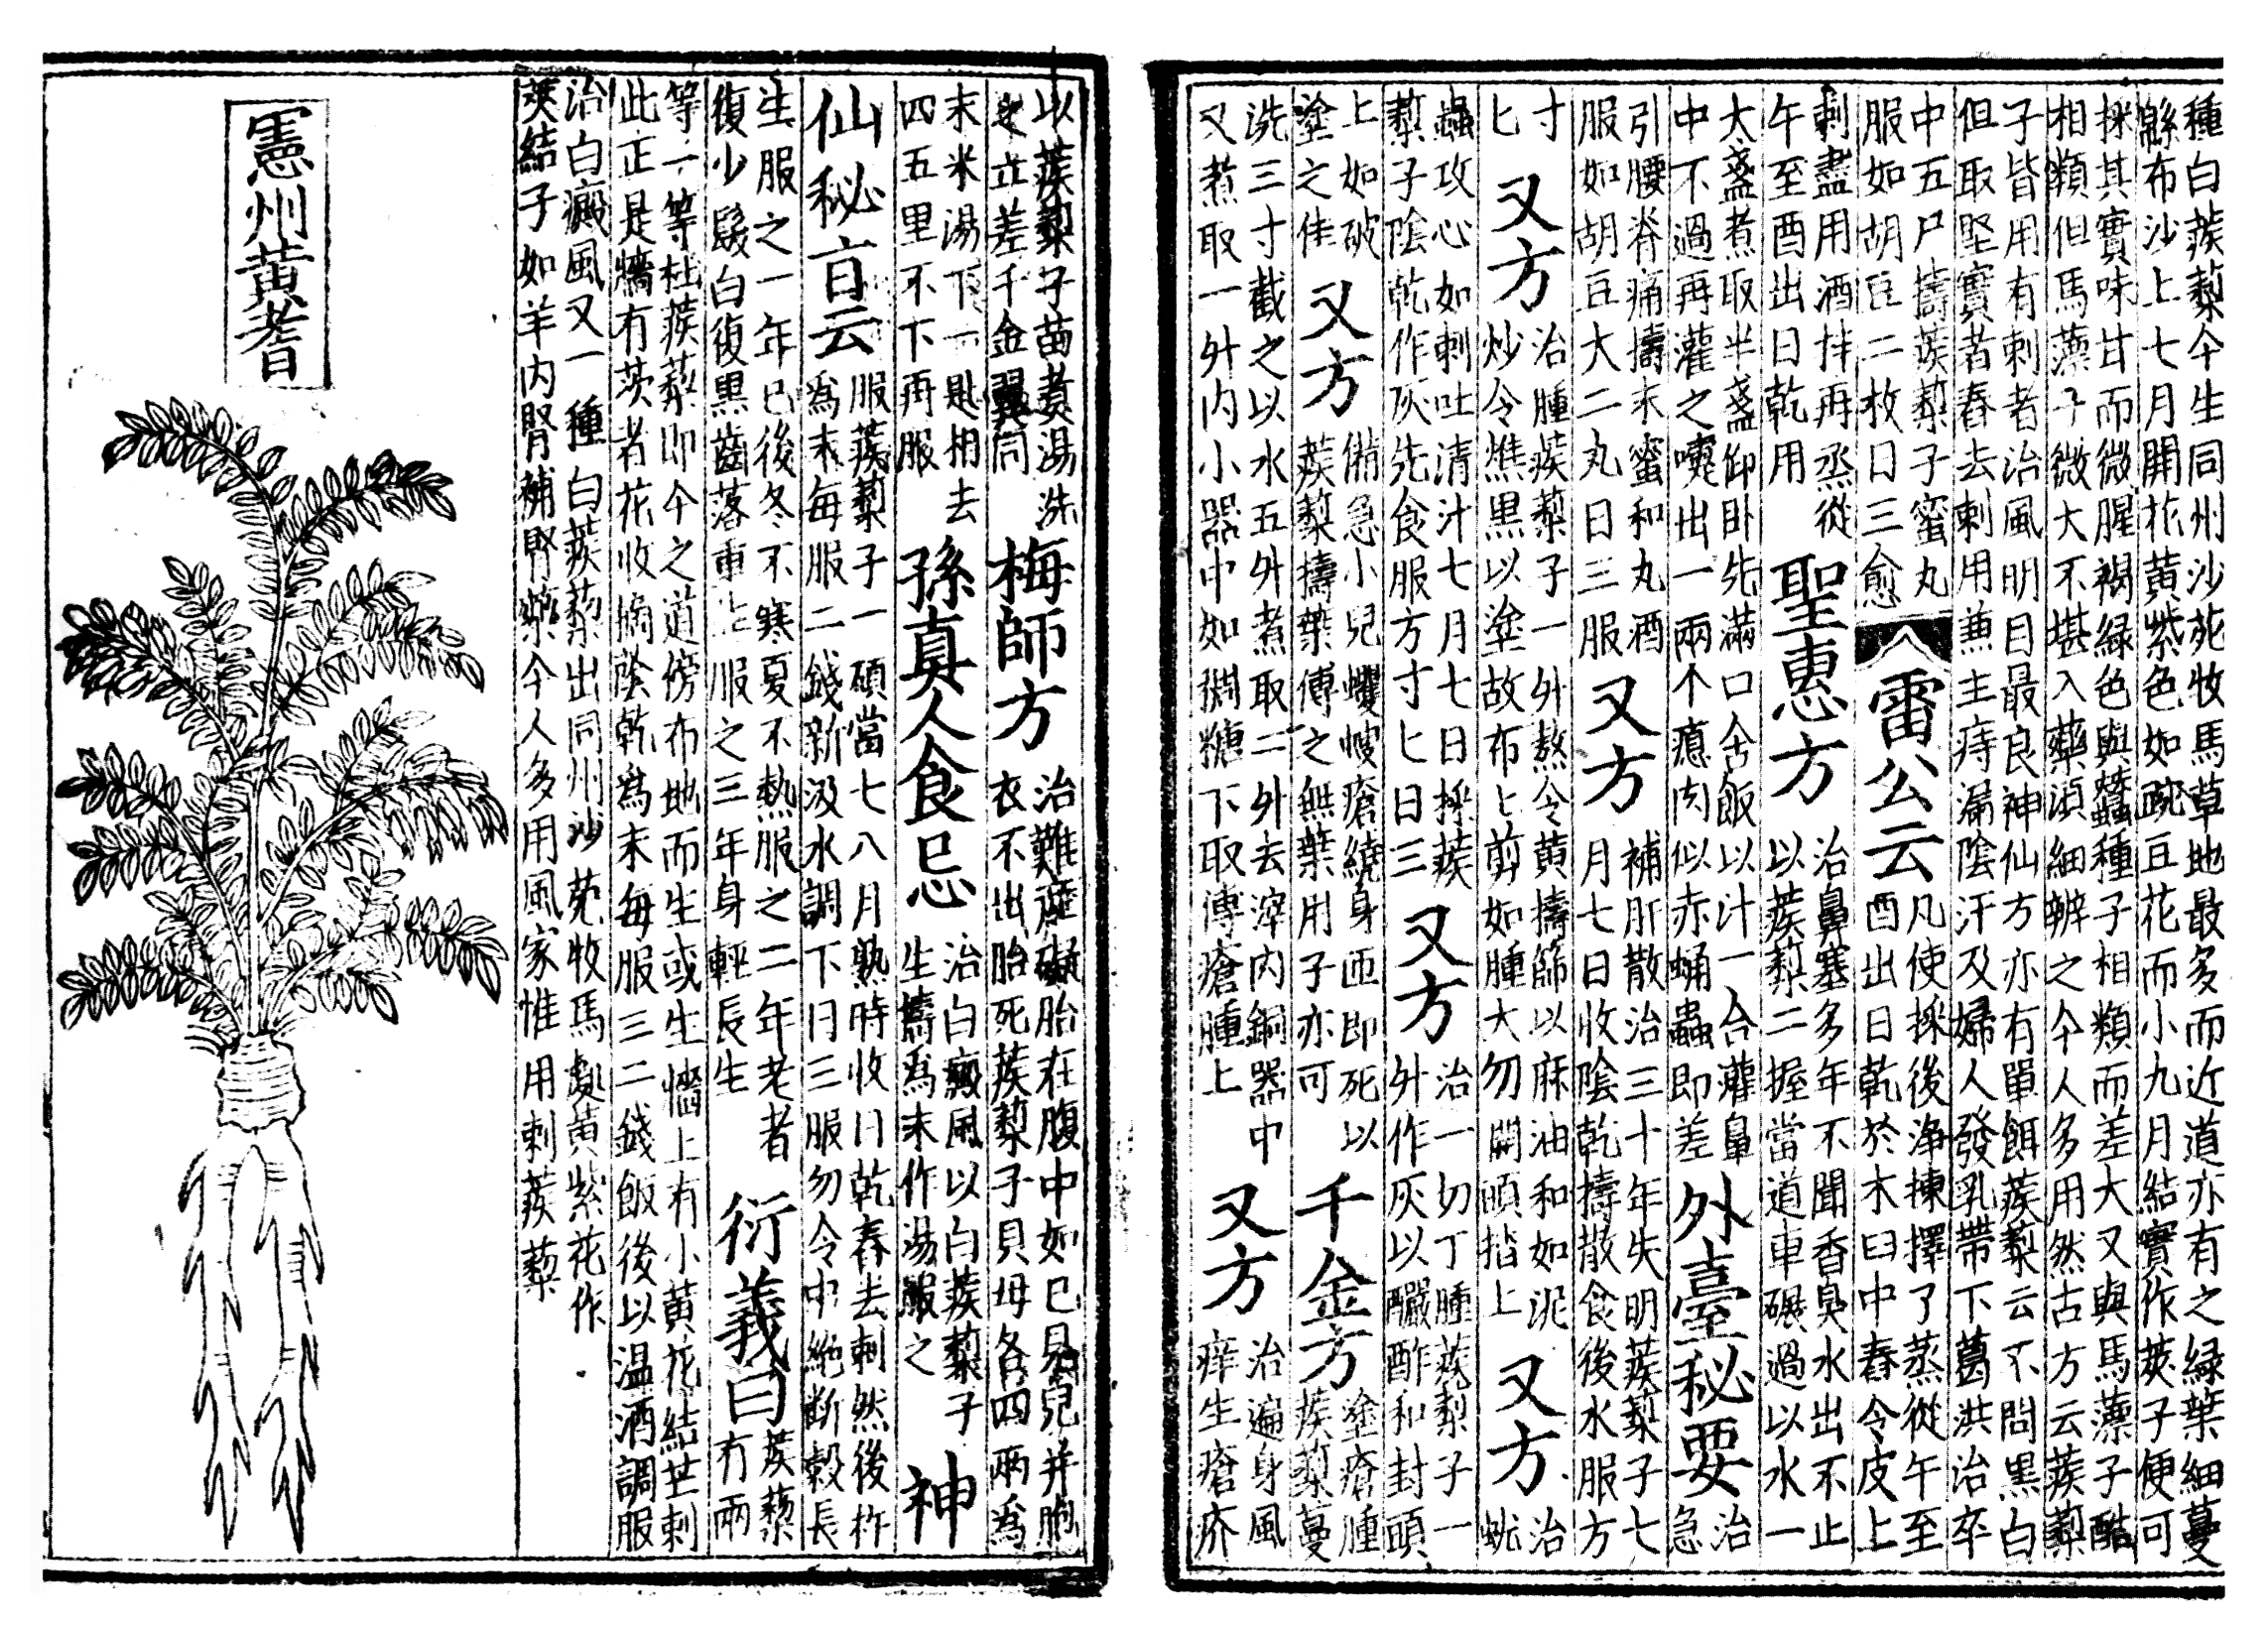 種白蒺蔾今生同州沙苑牧馬草地最多而近道亦有之緑葉細蔓
緜布沙上七月開花黄紫色如豌豆花而小九月結實作莢子便可
採其實味甘而微腥褐緑色與蠶種子相類而差大又與馬薸子酷
相類但馬薸子微大不堪入藥湏細辨之今人多用然古方云蒺蔾
子皆用有刺者治風明目最良神仙方亦有單餌蒺蔾云不問黒白
但取堅實者舂去刺用兼主痔漏隂汗及婦人發乳帶下葛洪治卒
中五尸擣蒺蔾子蜜丸
服如胡豆二枚日三愈
雷公云
凡使採後浄揀擇了蒸從午至
酉出日乾於木臼中舂令皮上
刺盡用酒拌再烝從
午至酉出日乾用
聖惠方
治鼻塞多年不聞香臭水出不止
以蒺蔾二握當道車碾過以水一
大盞煮取半盞仰卧先滿口含飯以汁一合灌鼻
中不過再灌之嚏出一兩个瘜肉似赤蛹蟲即差
外臺秘要
治
急
引腰脊痛擣末蜜和丸酒
服如胡豆大二丸日三服
又方
補肝散治三十年失明蒺蔾子七
月七日收隂乾擣散食後水服方
寸
匕
又方
治腫蒺蔾子一外熬令黄擣篩以麻油和如泥
炒令燋黒以塗故布上剪如腫大勿開頭揩上
又方
治
蚘
蟲攻心如刺吐清汁七月七日採蒺
蔾子隂乾作灰先食服方寸匕日三
又方
治一切丁腫蒺蔾子一
外作灰以釅酢和封頭
上如破
塗之佳
又方
備急小兒蠼螋瘡繞身匝即死以
蒺蔾擣葉傅之無葉用子亦可
千金方
塗瘡腫
蒺蔾蔓
洗三寸截之以水五外煮取二外去滓内銅器中
又煮取一外内小器中如稠糖下取傅瘡腫上
又方
治遍身風
痒生瘡疥
以蒺蔾子苗煮湯洗
之立差千金翼同
梅師方
治難産礙胎在腹中如已見兒并胞
衣不出胎死蒺蔾子貝母各四兩為
末米湯下一匙相去
四五里不下再服
孫真人食忌
治白癜風以白蒺蔾子
生擣為末作湯服之
神
仙秘㫖云
服蒺蔾子一碩當七八月熟時收日乾舂去刺然後杵
為末每服二錢新汲水調下日三服勿令中絶斷穀長
生服之一年已後冬不寒夏不熱服之二年老者
復少髮白復黒齒落重生服之三年身輕長生
衍義曰
蒺蔾
有兩
等一等杜蒺蔾即今之道傍布地而生或生墻上有小黄花結芒刺
此正是墻有茨者花收摘隂乾為末每服三二錢飯後以温酒調服
治白癜風又一種白蒺蔾出同州沙苑牧馬處黄紫花作
莢結子如羊内腎補腎藥今人多用風家惟用刺蒺蔾
憲州黄耆